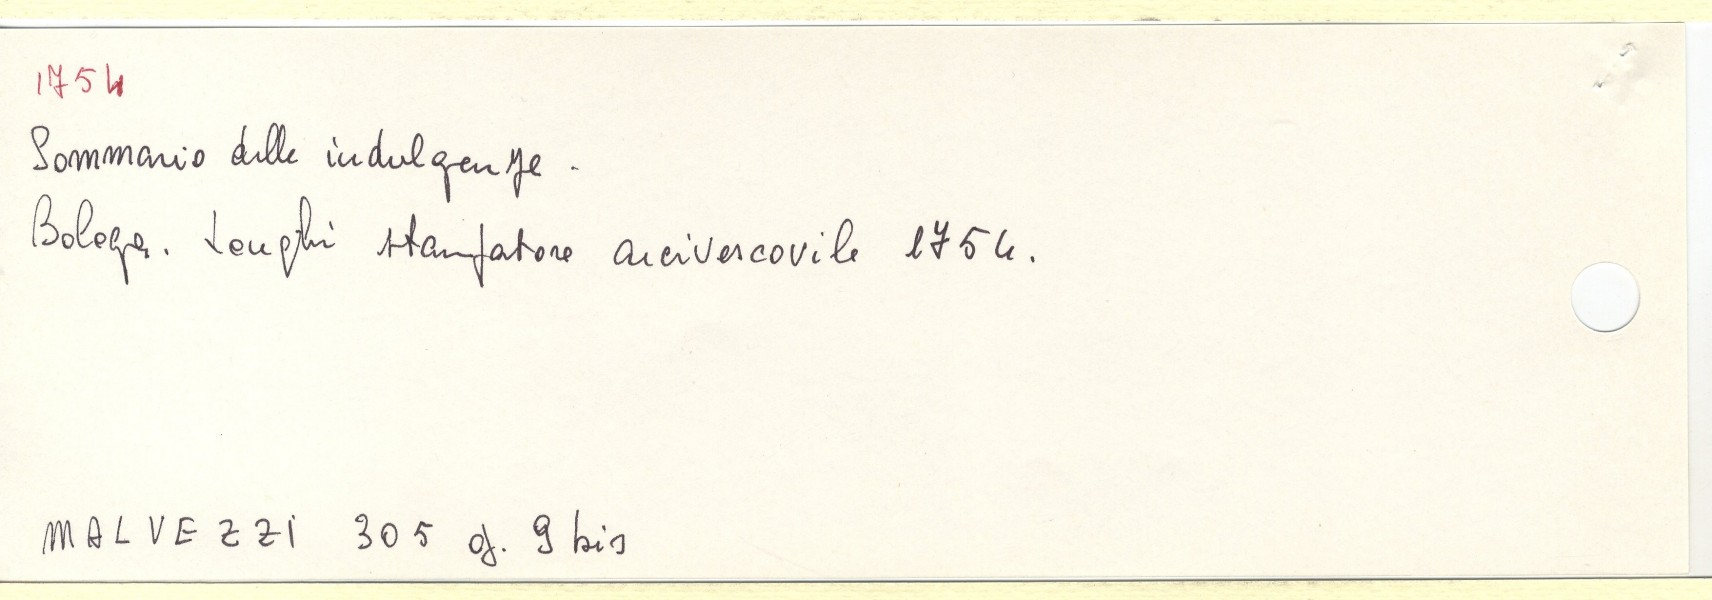 1754
Sommario delle indulgenze.
Bologna. Longhi stampatore arcivescovile 1754.
MALVEZZI 305 f. 9 bis